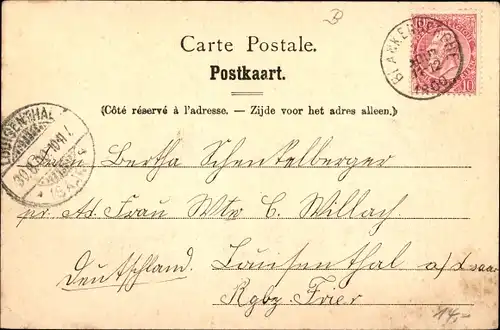 B
Carte Postale.
Postkaart.
(Côté réservé à l'adresse. — Zijde voor het adres alleen.)
BLANKENBERGHE
10
Frau Bertha Schenkelberger
pr. Ad. Frau Wtw C. Willach
Deutschland. Lausenthal a/d Saar
Rgbz. Trier
14,-